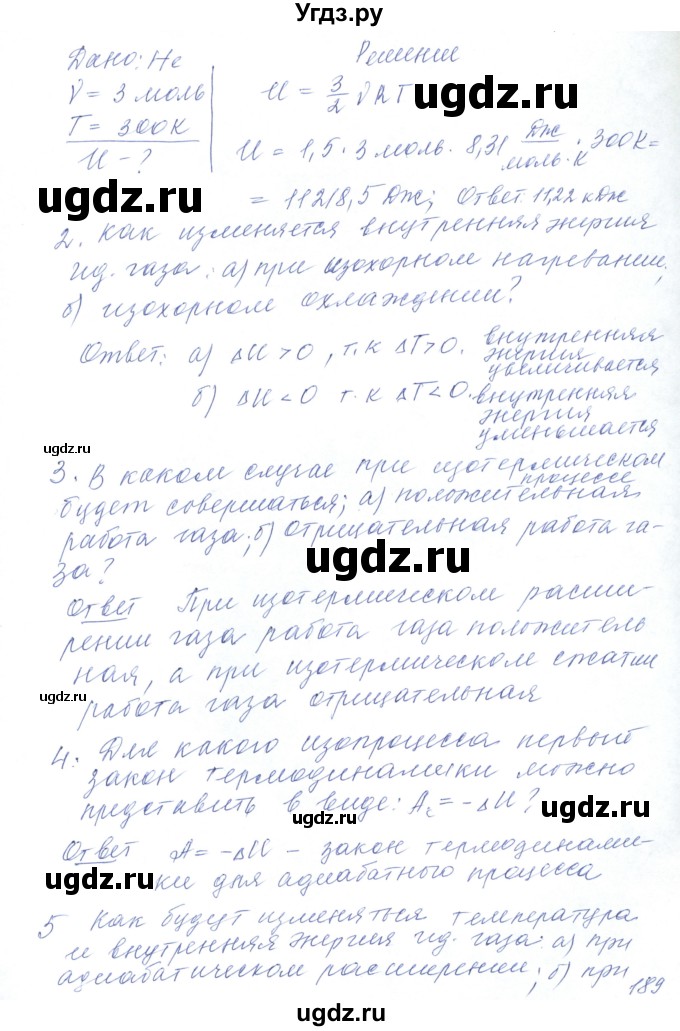 Угдз.ру
Дано: Не
Решение
ν = 3 моль
U = 3/2 νRT
T = 300К
U - ?
U = 1,5 · 3 моль · 8,31 Дж/моль·К · 300К =
= 11218,5 Дж; Ответ 11,22 кДж
2. Как изменяется внутренняя энергия
ид. газа: а) при изохорном нагревании,
б) изохорном охлаждении?
Ответ: а) ΔU > 0, т.к ΔT > 0. внутренняя
энергия
увеличивается
б) ΔU < 0 т.к ΔT < 0. внутренняя
энергия
уменьшается
3. В каком случае при изотермическом
процессе
будет совершаться; а) положительная
работа газа; б) отрицательная работа га-
за?
Ответ При изотермическом расши-
рении газа работа газа положитель
ная, а при изотермическом сжатии
работа газа отрицательная
4. Для какого изопроцесса первый
закон термодинамики можно
представить в виде: Aг = -ΔU?
Ответ A = -ΔU - закон термодинами-
ки для адиабатного процесса
5 Как будут изменяться температура
и внутренняя энергия ид. газа: а) при
адиабатическом расширении; б) при
189
ugdz.ru
ugdz.ru
ugdz.ru
ugdz.ru
ugdz.ru
ugdz.ru
ugdz.ru
ugdz.ru
ugdz.ru
ugdz.ru
ugdz.ru